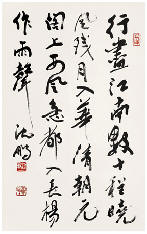 行盡江南數十程曉
風残月入華清朝元
閣上西風急都入長楊
作雨聲 沈鵬